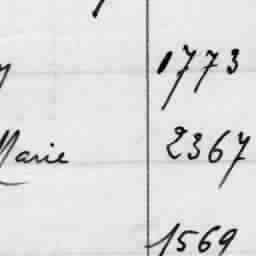 y 1773
Marie 2367
1569